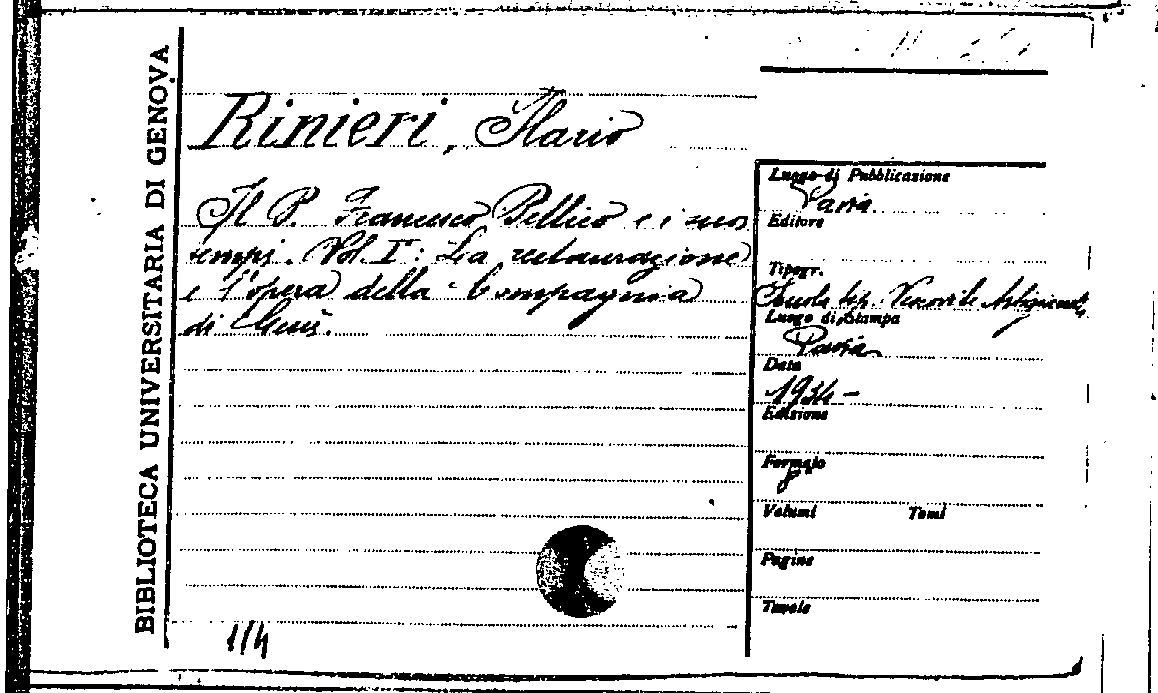 BIBLIOTECA UNIVERSITARIA DI GENOVA
Rinieri, Ilario
Il P. Francesco Pellico e i suoi
tempi. Vol. I°: La restaurazione
e l'opera della Compagnia
di Gesù.
1/4
Luogo di Pubblicazione
Pavia.
Editore
Tipogr.
Scuola tip. Artigianelli,
Luogo di Stampa
Pavia
Data
1934 -
Edizione
Formato
Volumi Tomi
Pagine
Tavole